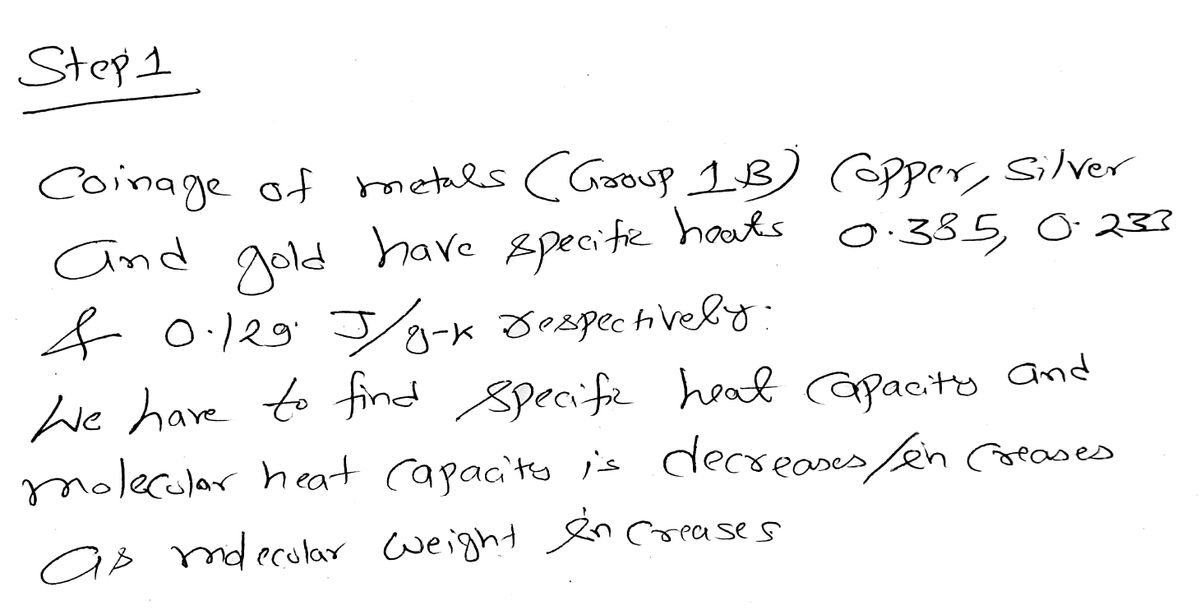 Step 1
Coinage of metals (Group 1B) Copper, Silver
and gold have specific heats 0.385, 0.233
& 0.129 J/g-K respectively.
We have to find specific heat capacity and
molecular heat capacity is decreases/in creases
as molecular weight in creases